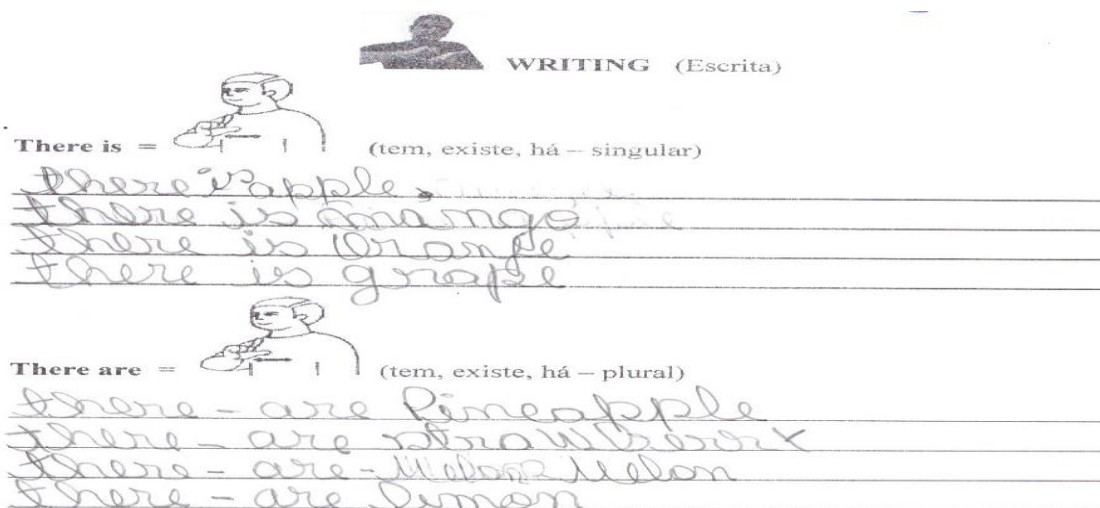 WRITING (Escrita)
There is = (tem, existe, há – singular)
there is apple.
there is mango
there is Orange
there is grape
There are = (tem, existe, há – plural)
there - are Pineapple
there - are strawberry
there - are - Melon
there - are limon